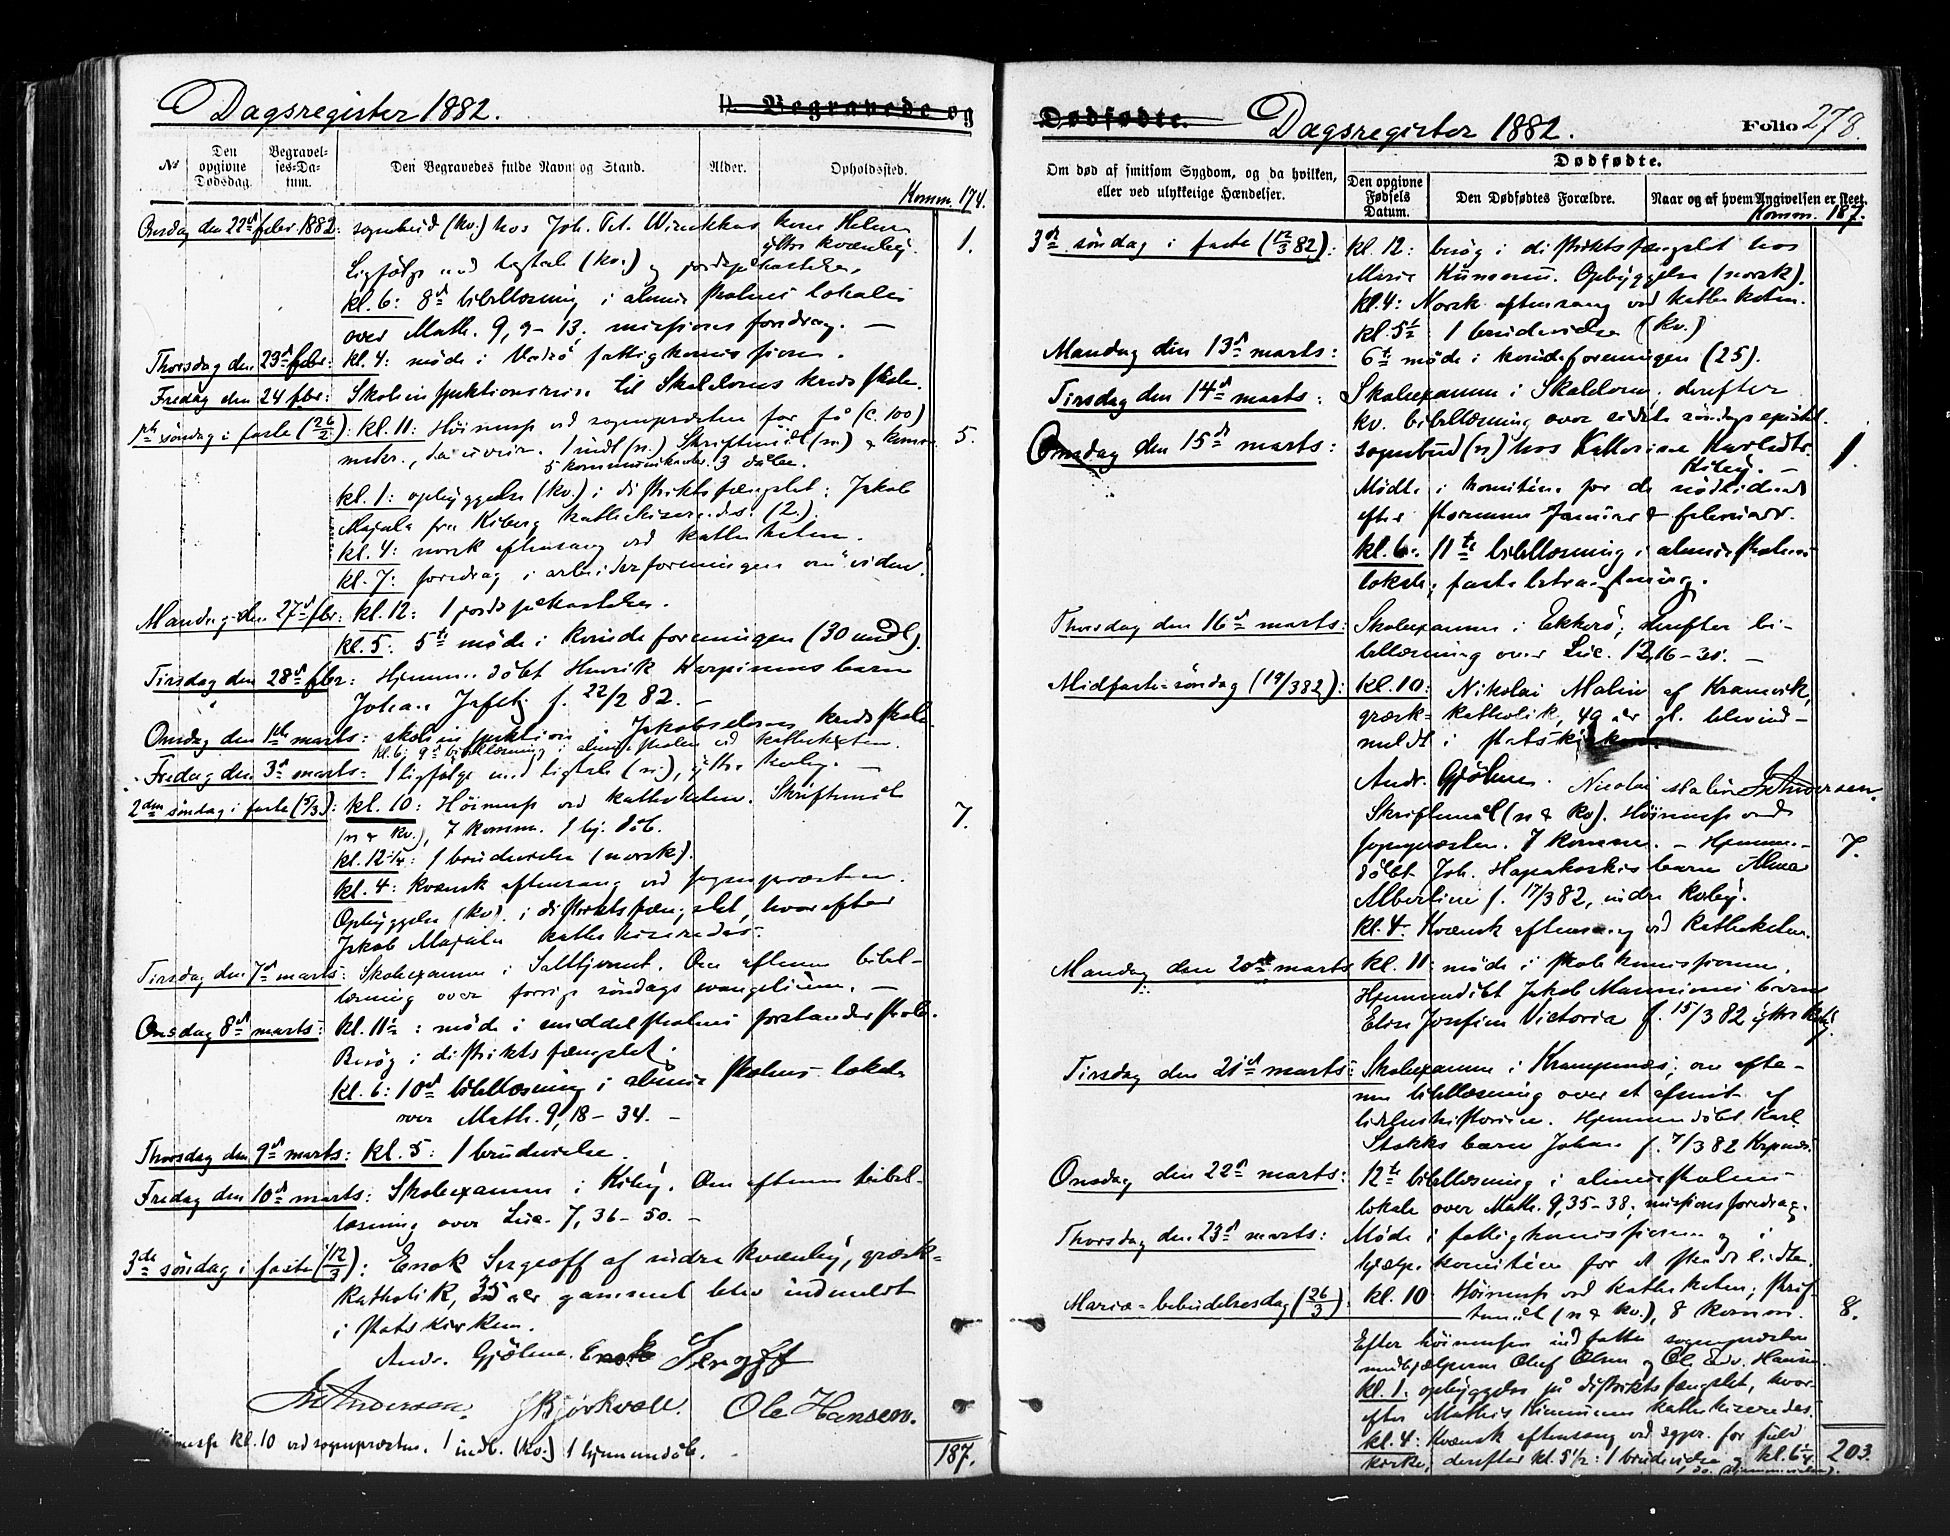 Dagsregister 1882.
D. Begravede og
No
Den opgivne Dødsdag.
Begravel- ses-Da- tum.
Den Begravedes fulde Navn og Stand.
Alder.
Opholdssted.
Komm. 174.
Onsdag den 22d febr. 1882: sognebud (kv.) hos Joh. Pet. kone Helena 1.
ytre kvænby.
Ligfølge med ligtale (kv.) og jordspåkastelse.
kl. 6: 8d bibellæsning i almueskolens lokale
over Math. 9, 9-13, missionsforedrag. —
Thorsdag den 23d febr: kl. 4: møde i Vadsø fattigkomission.
Fredag den 24 febr: Skoleinspektionsreise til Skaldones kredsskole.
1ste søndag i faste (26/2): kl. 11: Høimesse ved sognepræsten for få (c. 100) 5.
mdsk., da uveir. 1 indl (n.) Skriftemål (n.) & kommun.
5 kommunikanter. 3 døbe.
kl. 1: opbyggelse (kv.) i distriktsfængslet; Jakob
Majala fra Kiberg kathekiseredes. (2.)
kl. 4: norsk aftensang ved katheketen.
kl. 7: foredrag i arbeiderforeningen om "viden.
Mandag den 27d febr: kl. 12: 1 jordspåkastelse.
kl. 5: 5te møde i kvindeforeningen (30 medl).
Tirsdag den 28d febr: Hjemmedøbt Henrik Harpinens barn
Johan Jafet f. 22/2 82. —
Onsdag den 1ste marts: skoleinspektion i Jakobselvens kredsskole.
kl. 6: 9d bibellæsning i almueskolen ved katheketen.
Fredag den 3d marts: 1 ligfølge med ligtale (n.), ytre kvby. —
2den søndag i faste (5/3): kl. 10: Høimesse ved katheketen. Skriftemål
(n & kv.), 7 komm. 1 hj. døb. 7.
kl. 12 1/4: 1 brudevielse (norsk).
kl. 4: kvænsk aftensang ved sognepræsten.
Opbyggelse (kv.) i distriktsfængslet, hvorefter
Jakob Majala kathekiseredes.
Tirsdag den 7d marts: Skoleexamen i Salttjernet. Om aftenen bibel-
læsning over forrige søndags evangelium. —
Onsdag 8d marts: kl. 11½: møde i middelskolens forstanderskab.
Besøg i distriktsfængslet.
kl. 6: 10d bibellæsning i almueskolens lokale
over Math. 9, 18-34. —
Thorsdag den 9d marts: kl. 5: 1 brudevielse.
Fredag den 10d marts: Skoleexamen i Kiby. Om aftenen bibel-
læsning over Luc. 7, 36-50. —
3de søndag i faste (12/3): Enok Sergeoff af indre kvænby, græsk-
katholik, 35 aar gammel blev indmeldt
i statskirken.
Andr. Gjølme. Enok Sergoff
Andersen. J Bjørkvall. Ole Hansen.
Høimesse kl. 10 ved sognepræsten. 1 indl. (kv.) 1 hjemmedøb. 187.
Dødfødte.
Dagsregister 1882.
Folio 278.
Om død af smitsom Sygdom, og da hvilken, eller ved ulykkelige Hændelser.
Dødfødte.
Den opgivne Fødsels Datum.
Den Dødfødtes Forældre.
Naar og af hvem Angivelsen er skeet.
Komm. 187.
3de søndag i faste (12/3 82): kl. 12: besøg i distriktsfængslet hos
Maria Opbyggelse (norsk).
kl. 4: Norsk aftensang ved katheketen.
kl. 5½ 1 brudevielse (kv.)
Mandag den 13d marts: 6te møde i kvindeforeningen (25).
Tirsdag den 14d marts: Skoleexamen i Skaldone, derefter
kv. bibellæsning over sidste søndags epistel.
Onsdag den 15d marts: sognebud (n) hos Katharina 1.
Kiby. —
Møde i komitéen for de nødlidende
efter stormene Januar & februar.
kl. 6: 11te bibellæsning i almueskolens
lokale, fastebetragtning.
Thorsdag den 16d marts: Skoleexamen i Ekkerø; derefter bi-
bellæsning over Luc. 12, 16-31. —
Midfaste-søndag (19/3 82): kl. 10: Nikolai Malin af Kramvik,
græsk-katholik, 49 aar gl. blev ind-
meldt i statskirken.
Andr. Gjølme. Nicolai Malin Andersen.
Skriftemål (n & kv). Høimesse ved
sognepræsten. 7 komm. — Hjemme- 7.
døbt Joh. Hapakoskis barn Alma
Albertine f. 17/3 82, indre kvby.
kl. 4: Kvænsk aftensang ved katheketen.
Mandag den 20de marts kl. 11: møde i skolekomissionen.
Hjemmedøbt Jakob Manninens barn
Elise Josefine Victoria f. 15/3 82 ytre kvby.
Tirsdag den 21d marts: Skoleexamen i Krampenæs; om afte-
nen bibellæsning over et afsnit af
lidelseshistorien. Hjemmedøbt Karl
Stokks barn Johan f. 7/3 82 Krpnæs.
Onsdag den 22d marts: 12te bibellæsning i almueskolens
lokale over Math. 9, 35-38, missionsforedrag.
Thorsdag den 23d marts: Møde i fattigkomissionen og i
hjælpekomitéen for de skadelidte.
Mariæ-bebudelsesdag (26/3): kl. 10 Høimesse ved katheketen; skrif-
temål (n & kv.), 8 komm. 8.
Efter høimessen indsatte sognepræsten
medhjælperne Oluf Olsen og Ole Edv. Hansen.
kl. 1. opbyggelse på distriktsfængslet, hvor-
efter Mathis kathekiseredes.
kl. 4: Kvænsk aftensang ved sgpr. for fuld
kirke, derefter kl. 5½: 1 brudevielse og kl. 6¼ 203.
1 do. (hjemmevielse).